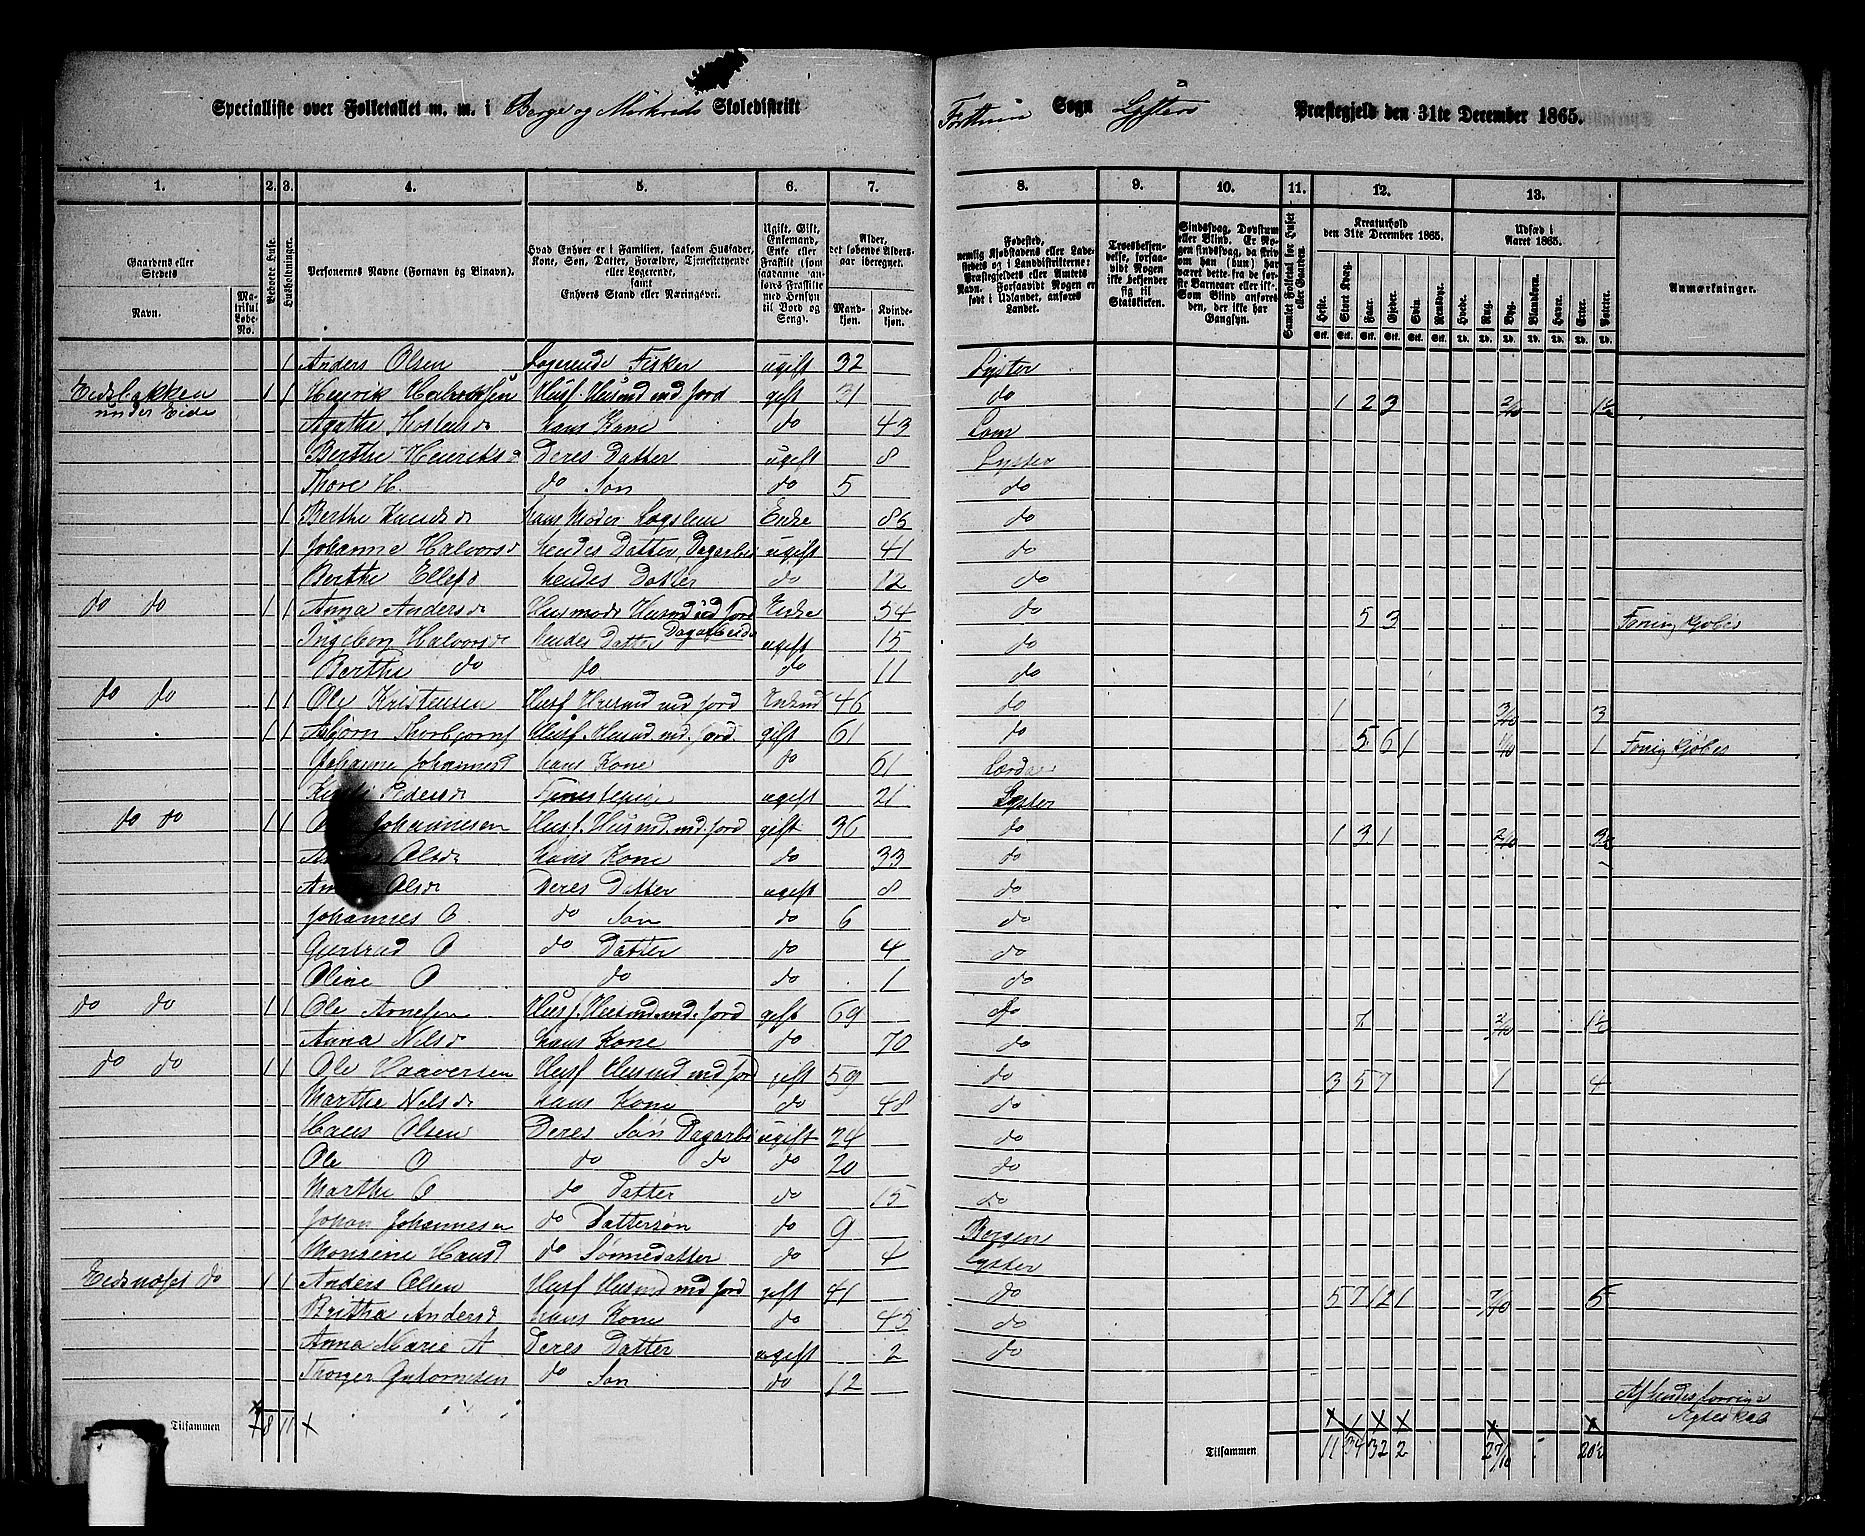 Specialliste over Folketallet m. m. i Berge og Mørkreds Skoledistrikt
Forthuns Sogn Lysters Præstegjeld den 31te December 1865.
1. 2. 3. 4. 5. 6. 7. 8. 9. 10. 11. 12. 13.
Gaardens eller Stedets
Navn.
Matrikul Løbe-No.
Beboede Huse.
Husholdninger.
Personernes Navne (Fornavn og Binavn).
Hvad Enhver er i Familien, saasom Husfader, Kone, Søn, Datter, Forældre, Tjenestetyende eller Logerende, samt Enhvers Stand eller Næringsvei.
Ugift, Gift, Enkemand, Enke eller Fraskilt
Alder, det løbende Aldersaar iberegnet.
Mandkjøn. Kvindekjøn.
Fødested,
Troesbekjendelse, forsaavidt Nogen ikke bekjender sig til Statskirken.
Samlet Folketal for Huset eller Gaarden.
Kreaturhold den 31te December 1865.
Heste. Stort Kvæg. Faar. Gjeder. Svin. Rensdyr.
Udsæd i Aaret 1865.
Hvede. Rug. Byg. Blandkorn. Havre. Erter. Poteter.
Anmærkninger.
1 Anders Olsen Logerende Fisker ugift 32 Lyster
Eidsbakken under Eide 1 1 Henrik Husf. Husmd md jord gift 31 do 1 2 3 2/10 1½
Agathe hans Kone do 43 Lom
Berthe Henriksd Deres Datter ugift 8 Lyster
Thore H. do Søn do 5 do
1 Berthe Knudsd hans Moder Enke 85 do
1 Johanne Halvorsd hendes Datter Dagarbei ugift 41 do
Berthe Ellefsd hendes Datter do 12 do
do do 1 1 Anna Andersd Husmode Husmd ud jord Dagarbeide Enke 54 do 5 3
Ingebor Halvorsd hendes Datter ugift 15 do
Berthe do do do 11 do
do do 1 1 Ole Kristensen Husf Husmd md jord Enkmd 46 do 1 3/10 3
1 1 Husf. Husmd md. jord. gift 61 do 5 6 1 1/10 1
Johanne Johannesd hans Kone do 61 Lærdal
Pedersd Tjenestepie ugift 21 Lyster
do do 1 1 Johannesen Husf. Husmd. md. jord gift 36 do 1 3 1 2/10
Olsdr hans Kone do 33 do
Anna Olsdr Deres Datter ugift 8 do
Johannes O do Søn do 6 do
Gjertrud O do Datter do 4 do
Oline O do do 1 do
do do 1 1 Ole Arnesen Husf. Husmd md. jord gift 69 do 7 2/10 1½
Anna Nilsd hans Kone do 70 do
do do 1 1 Ole Haaversen Husf Husmd md jord gift 59 do 3 5 7 1 4
Marthe Nilsdr hans Kone do 48 do
Hans Olsen Deres Søn Dagarbei ugift 24 do
Ole O do do do 20 do
Marthe O do Datter do 15 do
Johan Johannesen do Dattersøn do 9 Bergen
Monsine Hansd do Sønnedatter do 4 Lyster
Eidsnæset do 1 1 Anders Olsen Husf Husmd md jord gift 41 do 5 7 12 1 7/10 5
Britha Andersd hans Kone do 45 do
Anna Marie A Deres Datter ugift 2 do
Thorger Guttormsen do Søn do 12 Af hendes forrige Ægteskab
Tilsammen 8 11
Tilsammen 11 34 32 2 27/10 20½